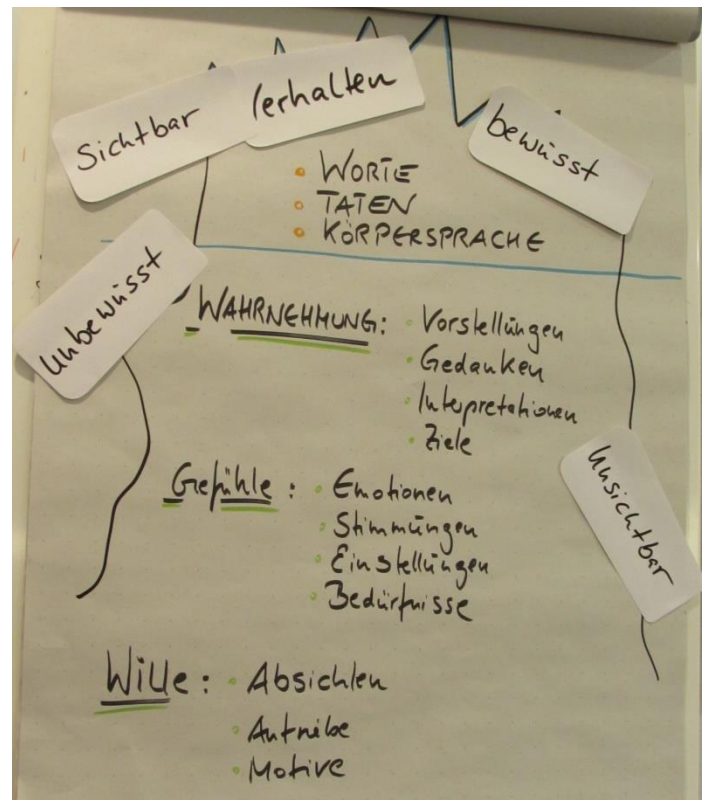 Sichtbar
Verhalten
bewusst
• WORTE
• TATEN
• KÖRPERSPRACHE
Unbewusst
WAHRNEHMUNG: • Vorstellungen
• Gedanken
• Interpretationen
• Ziele
Gefühle: • Emotionen
• Stimmungen
• Einstellungen
• Bedürfnisse
Unsichtbar
Wille: • Absichten
• Antriebe
• Motive